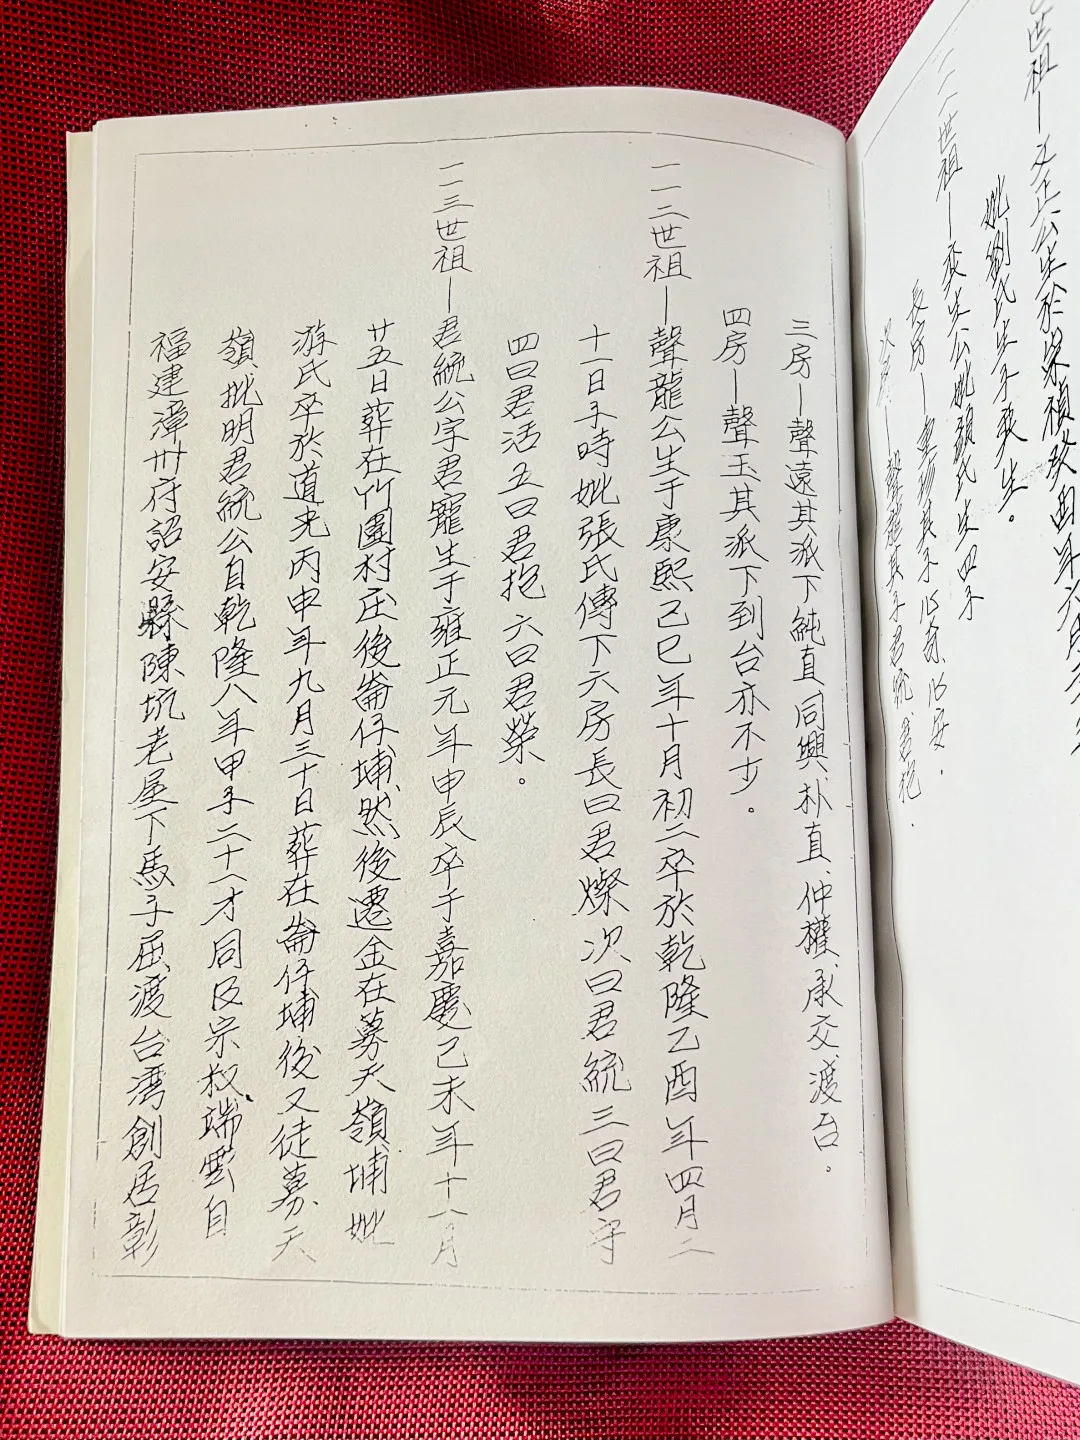 世祖—文正公生於崇禎癸酉年六月
妣劉氏生子奕生。
世祖—奕生公妣顏氏生四子
長房—其子以奇、以安.
次房—聲龍其子君統君抱.
三房—聲遠其派下純真、同興、朴直、仲權、承交渡台。
四房—聲玉其派下到台亦不少。
一一二世祖—聲龍公生于康熙己巳年十月初二卒於乾隆乙酉年四月二
十一日子時妣張氏傳下六房長曰君燦次曰君統三曰君守
四曰君活五曰君抱六曰君榮。
一一三世祖—君統公字君寵生于雍正元年甲辰卒于嘉慶己未年十八月
廿五日葬在竹圍村庄後崙仔埔然後遷金在募天嶺埔妣
游氏卒於道光丙申年九月三十日葬在崙仔埔後又徒募天
嶺批明君統公自乾隆八年甲子二十八才同及宗叔端雲自
福建漳州府詔安縣陳坑老屋下馬子屈渡台湾創居彰